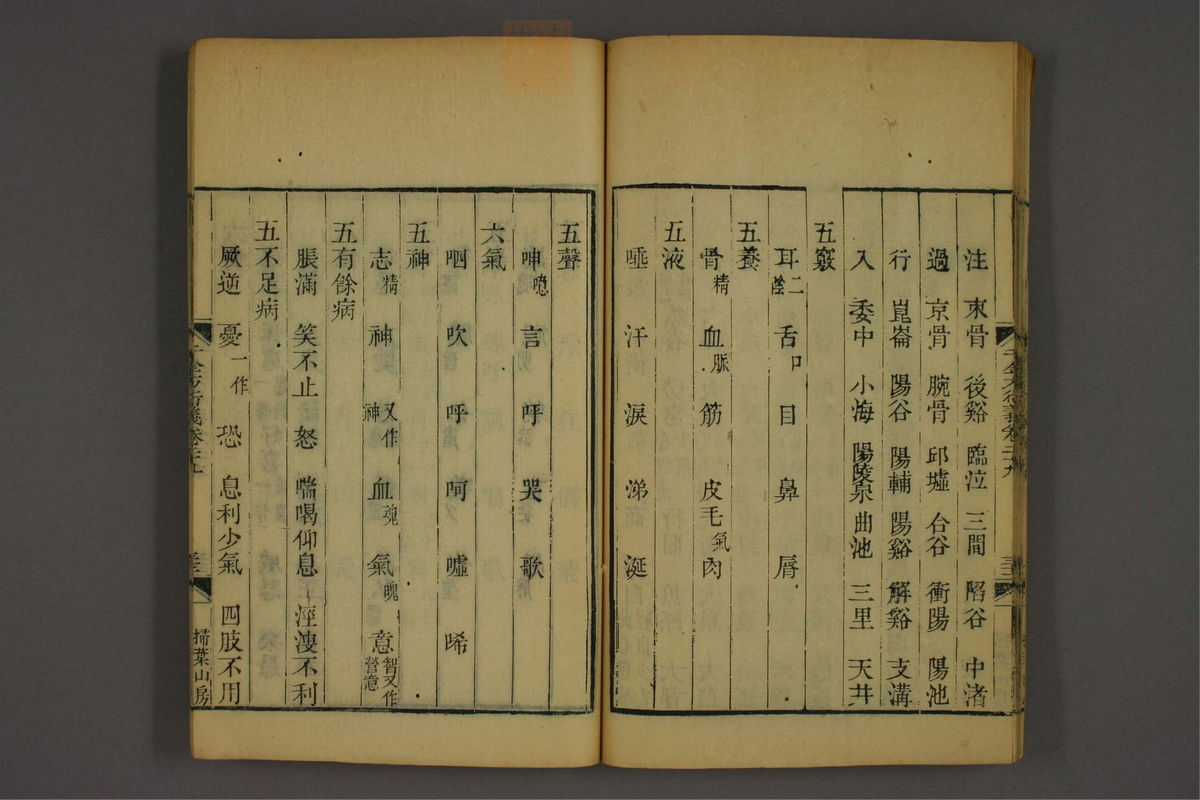 注　束骨　後谿　臨泣　三間　陷谷　中渚
過　京骨　腕骨　邱墟　合谷　衝陽　陽池
行　崑崙　陽谷　陽輔　陽谿　解谿　支溝
入　委中　小海　陽陵泉　曲池　三里　天井
五竅
耳二陰　舌口　目　鼻　唇
五養
骨精　血脈　筋　皮毛氣　肉
五液
唾　汗　淚　涕　涎
五聲
呻噫　言　呼　哭　歌
六氣
呬　吹　呼　呵　噓　唏
五神
志精　神又作神　血魂　氣魄　意智又作營意
五有餘病
脹滿　笑不止　怒　喘喝仰息　涇溲不利
五不足病
厥逆　憂一作恐　恐　息利少氣　四肢不用
千金方衍義卷二十九
掃葉山房